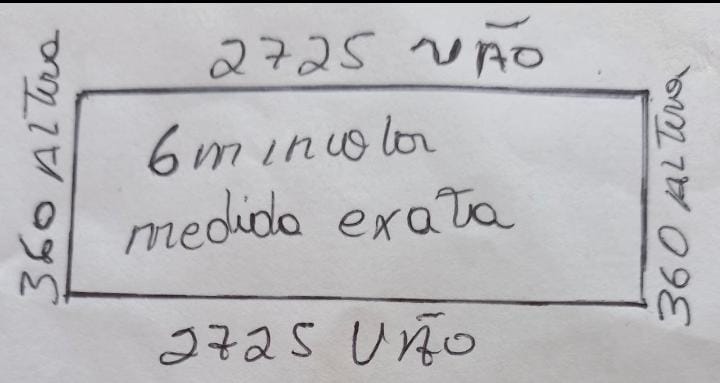 2725 VÃO
360 ALTura
6m incolor
medida exata
360 ALTura
2725 VÃO